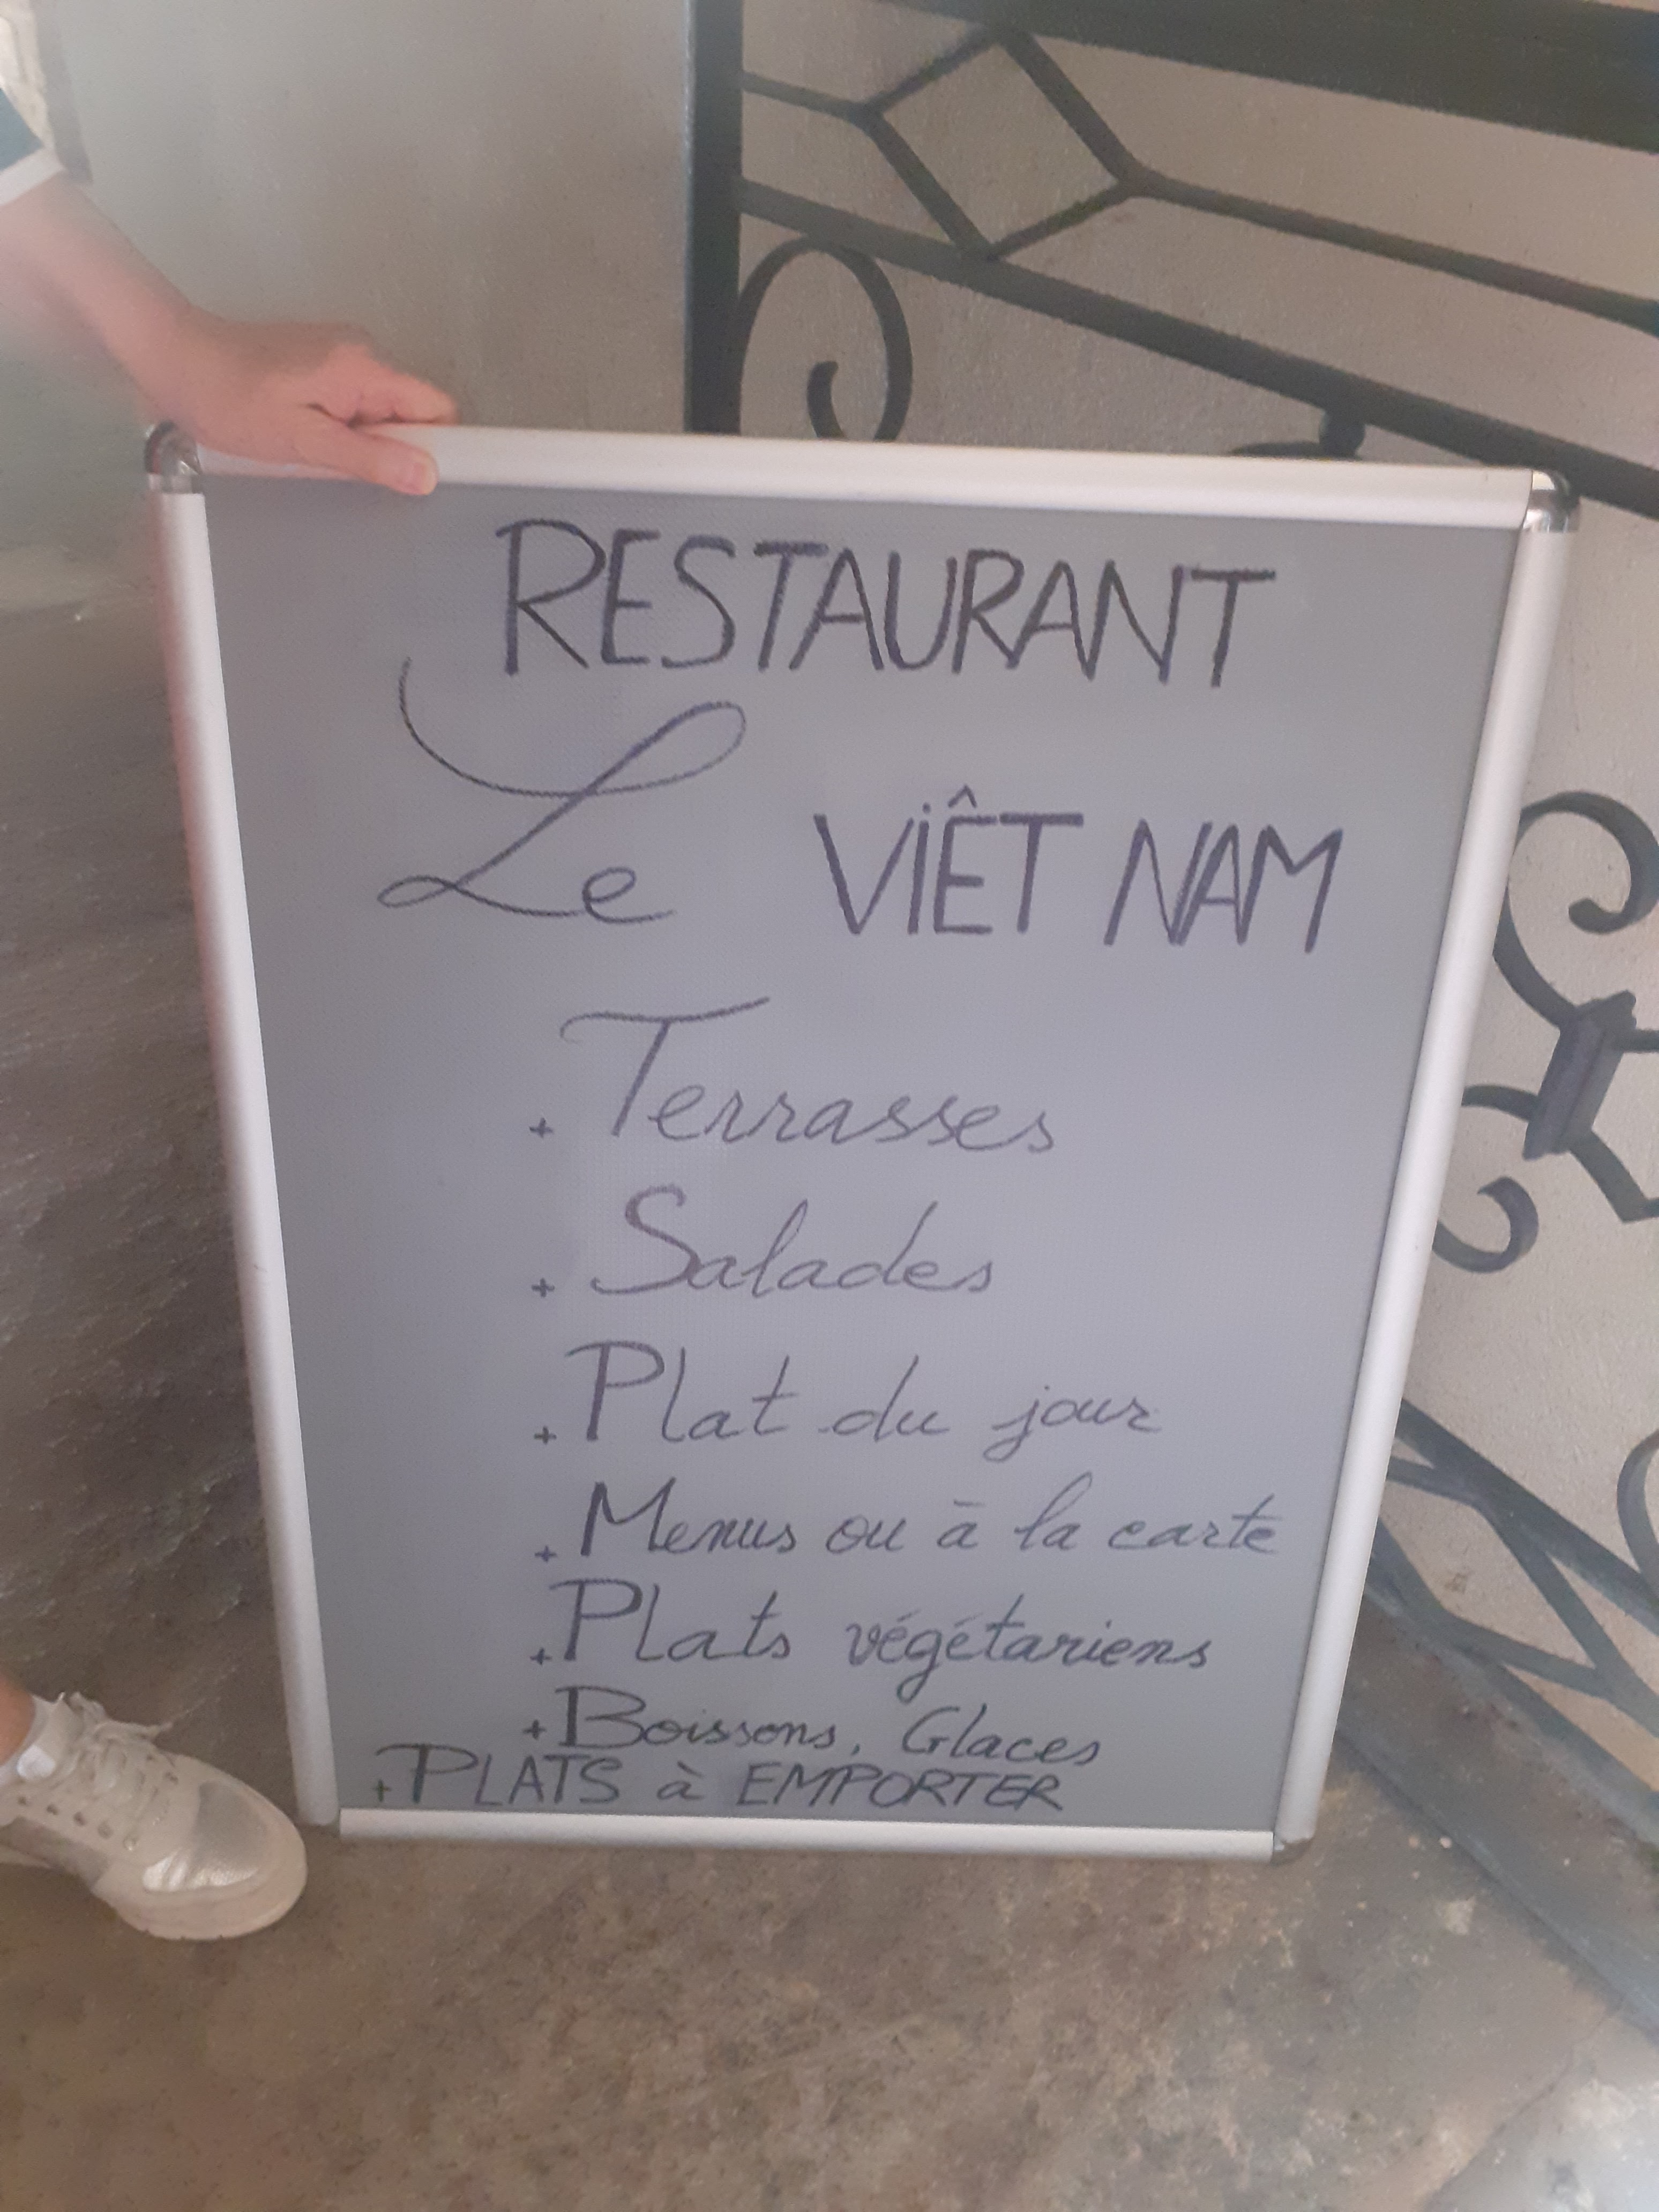 RESTAURANT
Le VIÊT NAM
+ Terrasses
+ Salades
+ Plat du jour
+ Menus ou à la carte
+ Plats végétariens
+ Boissons, Glaces
+ PLATS à EMPORTER